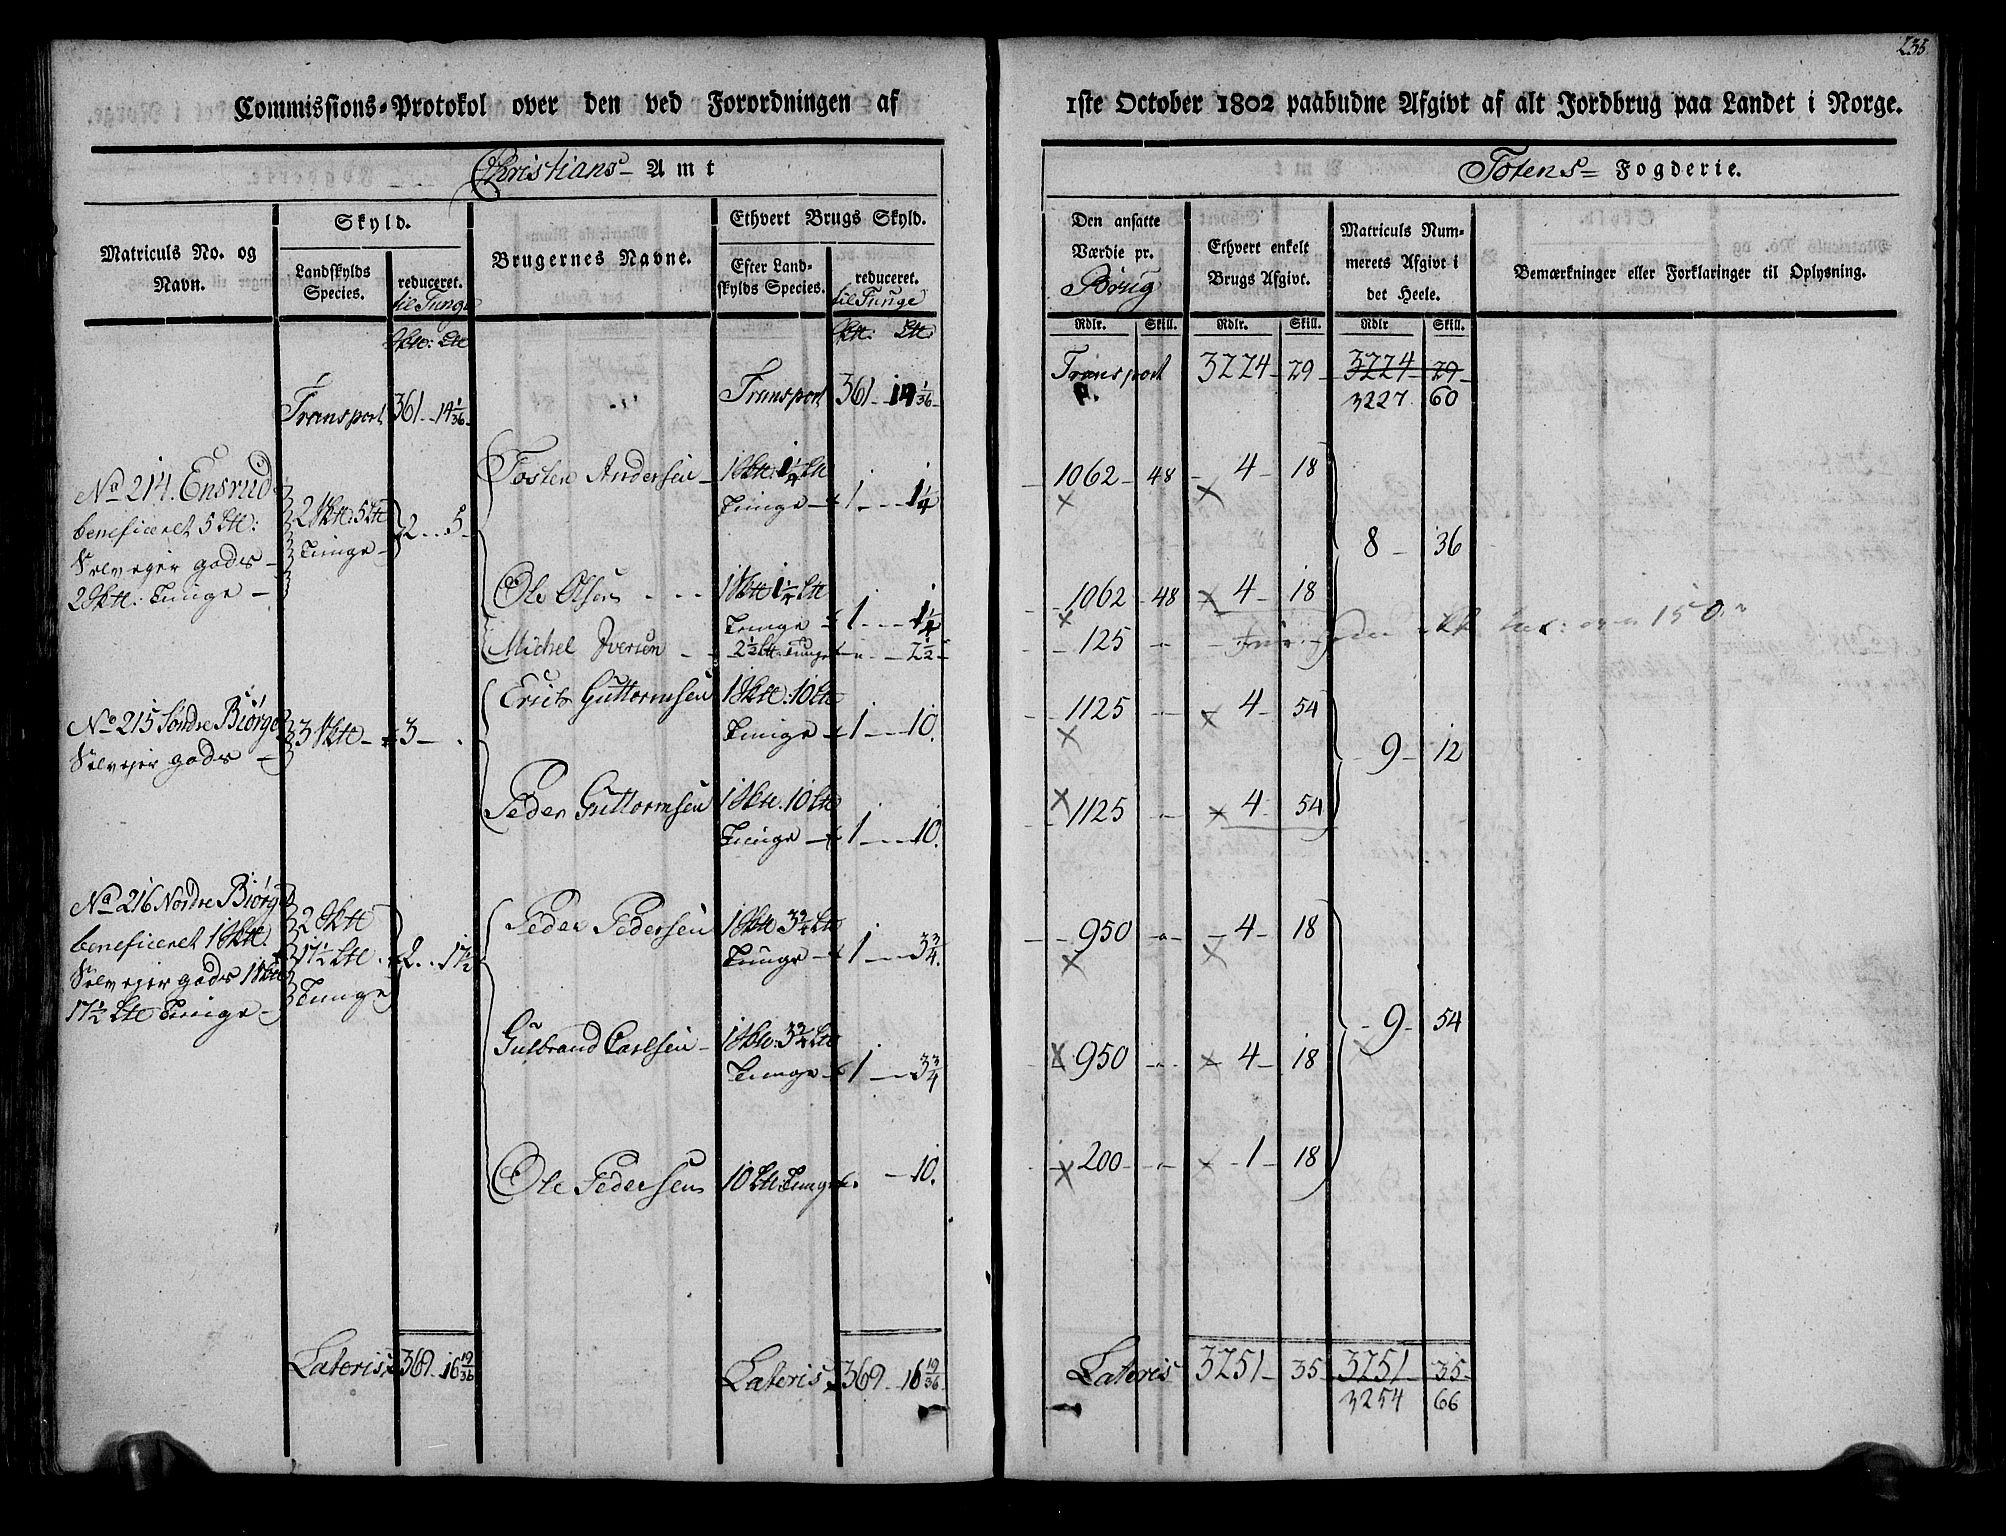 235
Commissions-Protokol over den ved Forordningen af
1ste October 1802 paabudne Afgivt af alt Jordbrug paa Landet i Norge.
Christians Amt
Totens Fogderie.
Matriculs No. og Navn.
Skyld.
Landskylds Species.
reduceret. til Tunge
Brugernes Navne.
Ethvert Brugs Skyld.
Efter Landskylds Species.
reduceret. til Tunge
Den ansatte Værdie pr. Brug
Ethvert enkelt Brugs Afgivt.
Matriculs Nummerets Afgivt i det Heele.
Bemærkninger eller Forklaringer til Oplysning.
Rdlr. Skill. Rdlr. Skill. Rdlr Skill.
Transport 361 - 14 1/36
Transport 361 - 14 1/36
Transport 3224 - 29 - 3224 - 29
3227 60
No 214. Ensrud
beneficeret 5 Ltt:
Selvejer gods
2 Sktt: Tunge -
2 Sktt: 5 Ltt
Tunge
2 .. 5
Tosten Andersen - 1 Sktt: 1 1/4 Ltt
Tunge - 1 - 1 1/4
1062 - 48 - 4 - 18
8 - 36
Ole Olsen - - - 1 Sktt 1 1/4 Ltt
Tunge 1 - 1 1/4
1062 - 48 4 - 18
Michel Iversen - - 2 1/2 Ltt: Tunge - 2 1/2
125 - 150
No 215 Søndre Biørge
Selvejer gods -
3 Sktt - 3 -
Erich Guttormsen 1 Sktt: 10 Ltt
Tunge - 1 - 10.
1125 4 - 54
9 - 12
Peder Guttormsen 1 Sktt. 10 Ltt
Tunge - 1 - 10.
1125 4 54
No 216 Nordre Biørge
beneficeret 1 Sktt.
Selvejer gods 1 Sktt
17 1/2 Ltt Tunge -
2 Sktt
17 1/2 Ltt
Tunge
2 .. 17 1/2
Peder Pedersen 1 Sktt 3 3/4 Ltt
Tunge - 1 - 3 3/4.
950 - 4 - 18
9 - 54
Gulbrand Carlsen - 1 Sktt: 3 3/4 Ltt
Tunge - 1 - 3 3/4
950 4 - 18
Ole Pedersen 10 Ltt Tunge - 10.
200 - 1 - 18
Lateris 369 - 16 19/36
Lateris 369 - 16 19/36
Lateris 3251 - 35 - 3251 - 35
3254 66